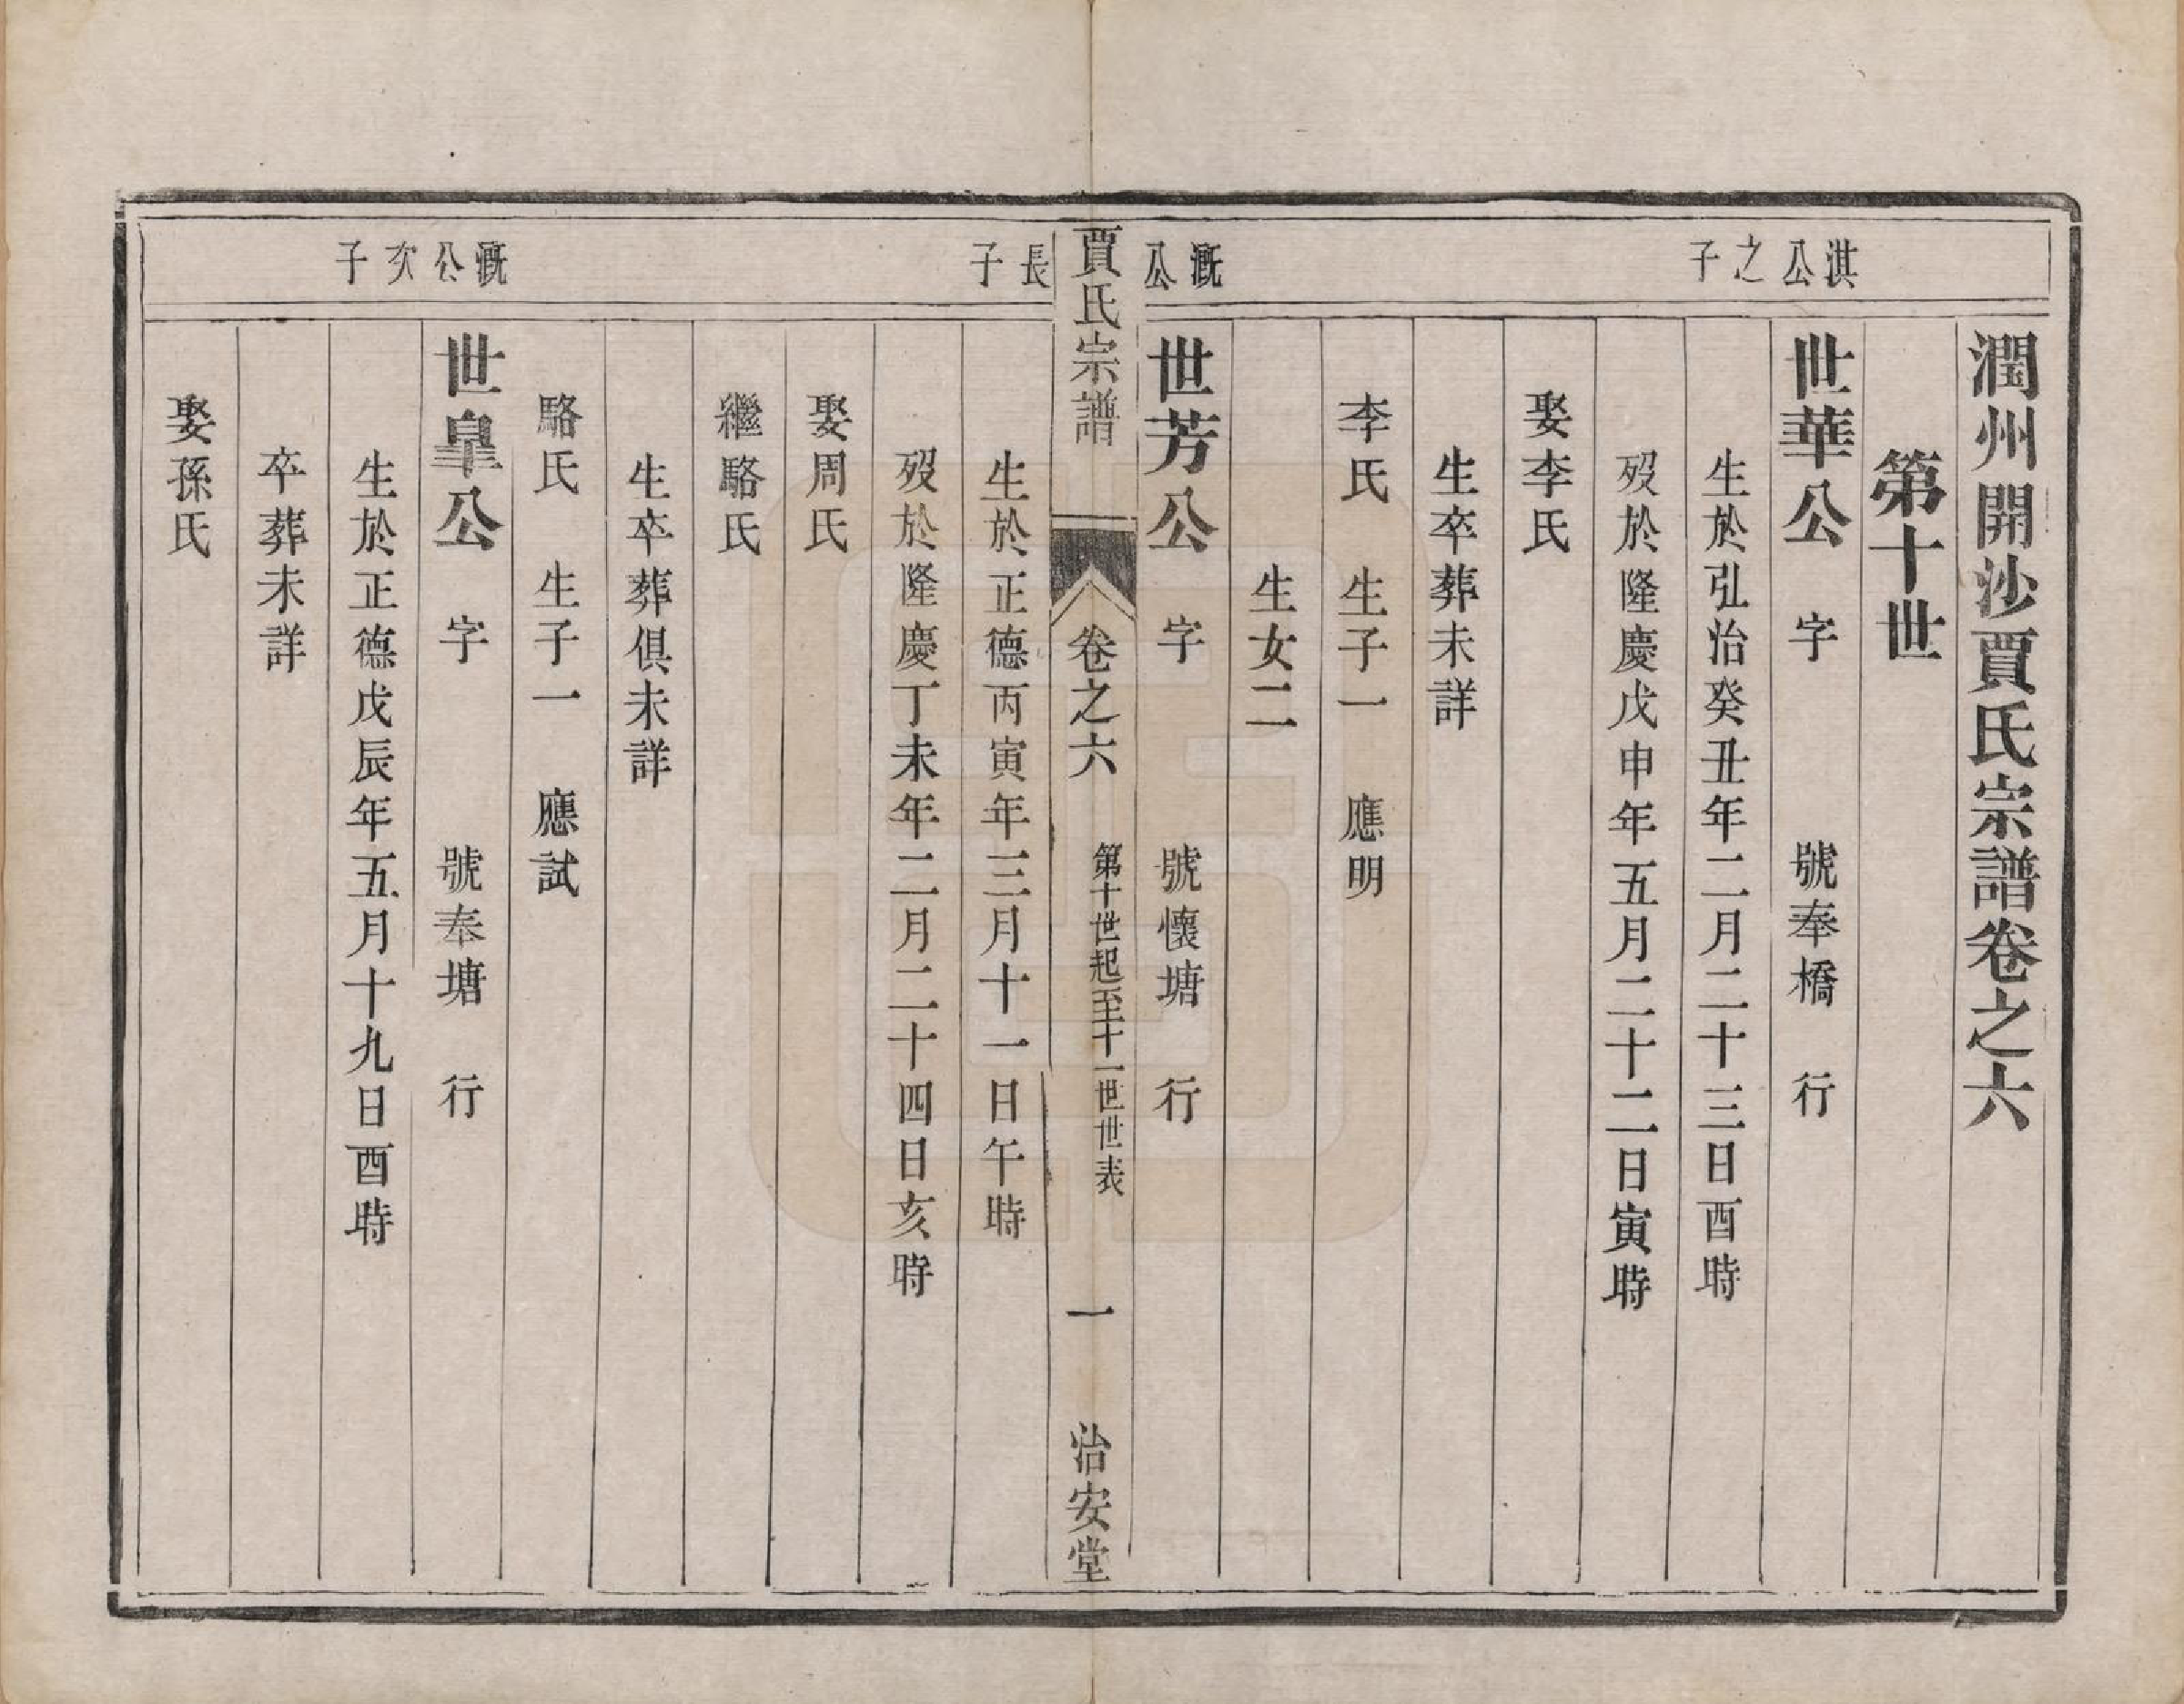 潤州開沙賈氏宗譜卷之六
第十世
淇公之子
世華公　字　號奉橋　行
生於弘治癸丑年二月二十三日酉時
歿於隆慶戊申年五月二十二日寅時
娶李氏
生卒葬未詳
李氏　生子一　應明
生女二
溉公長子
世芳公　字　號懷塘　行
賈氏宗譜
卷之六
第十世起至十一世世表
一
治安堂
生於正德丙寅年三月十一日午時
歿於隆慶丁未年二月二十四日亥時
娶周氏
繼駱氏
生卒葬俱未詳
駱氏　生子一　應試
溉公次子
世皐公　字　號奉塘　行
生於正德戊辰年五月十九日酉時
卒葬未詳
娶孫氏